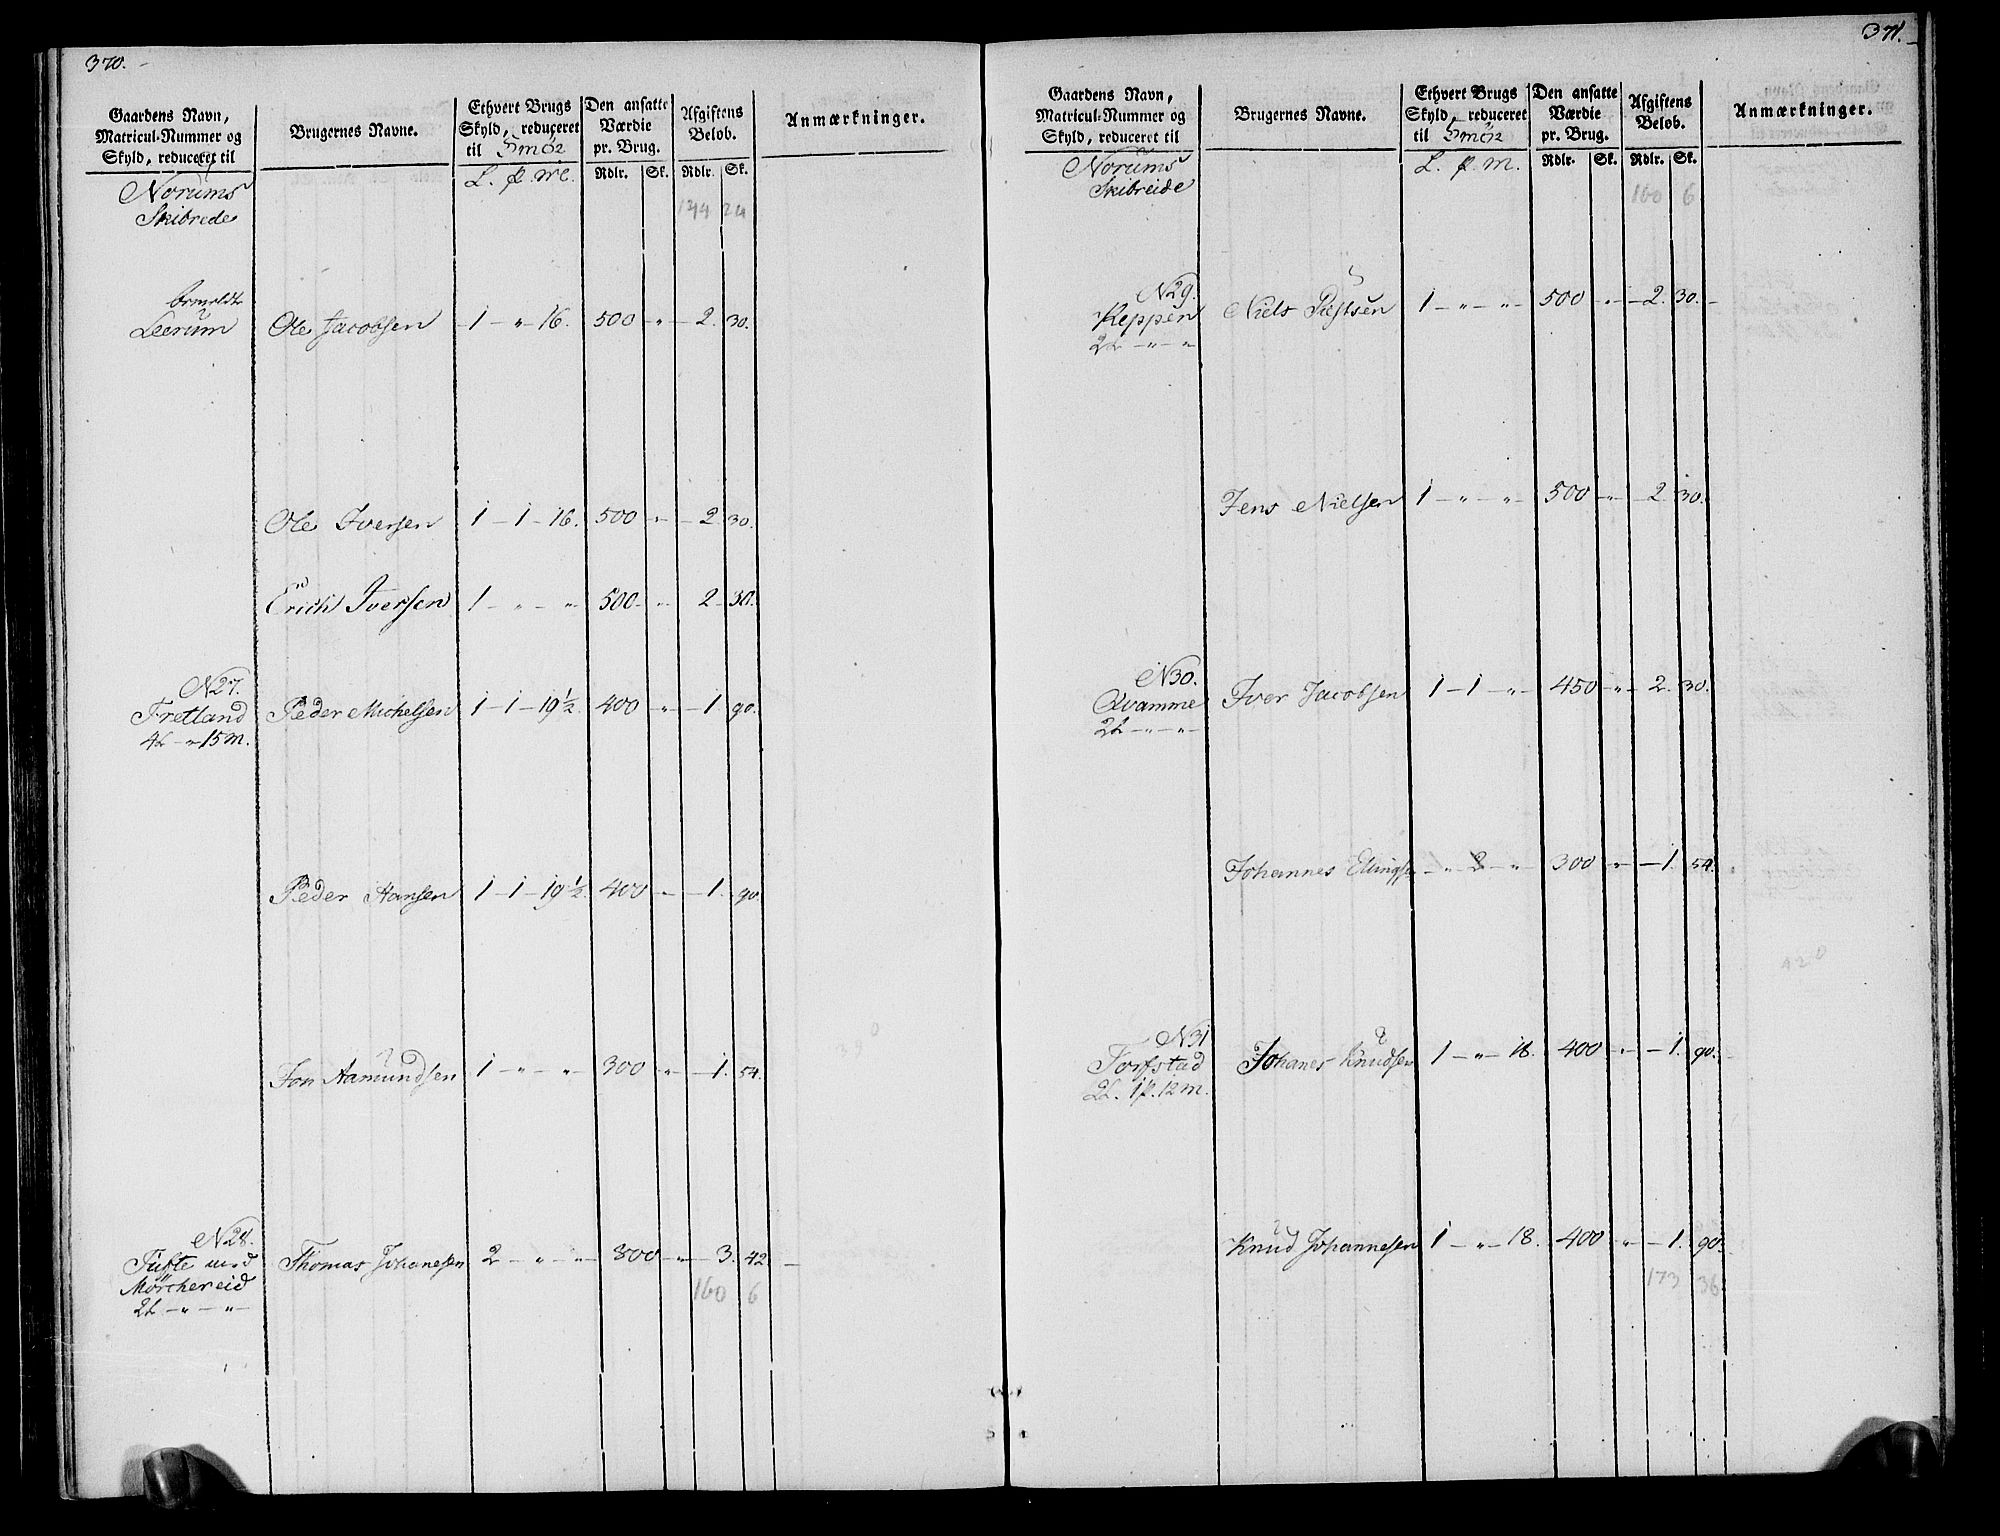 370.
Gaardens Navn, Matricul-Nummer og Skyld, reduceret til
Brugernes Navne.
Ethvert Brugs Skyld, reduceret til Smör
Den ansatte Værdie pr. Brug.
Afgiftens Beløb.
Anmærkninger.
L. p. m.
Rdlr. Sk. Rdlr. Sk.
Norums
Skibrede
144 24
Leerum Ole Jacobsen 1 - " - 16. 500 " - 2. 30.
Ole Iversen 1 - 1 - 16. 500 " - 2. 30.
Erich Iversen 1 - " - " 500 - " 2 - 30.
N27.
Fretland Peder Michelsen 1 - 1 - 19½. 400 " - 1. 90.
4L - " 15m.
Peder Hansen 1 - 1 - 19½. 400 - " - 1. 90.
Jon Aamundsen 1 - " - " 300 " - 1. 54.
N28.
Tufte med Thomas Johanesen 2 - " - " - 800 - " - 3. 42 -
Mörchereid
2L - " - " -
160 6
371.
Gaardens Navn, Matricul-Nummer og Skyld, reduceret til
Brugernes Navne.
Ethvert Brugs Skyld, reduceret til Smör
Den ansatte Værdie pr. Brug.
Afgiftens Beløb.
Anmærkninger.
L. p. m.
Rdlr. Sk. Rdlr. Sk.
Norums
Skibreide
160 6
N29.
Keppen Niels 1 - " - " - 500 - " - 2. 30. -
2L - " - "
Jens Nielsen 1 - " - " - 500 - " - 2. 30.
N30.
Qvamme Iver Jacobsen 1 - 1 - " - 450 - " - 2. 30.
2L - " - " -
Johannes - " 2 - " 300 - " - 1. 54.
420
N31
Torfstad Johanes Knudsen 1 - " - 18. 400 - " - 1. 90.
2L. 1p. 12m.
Knud Johannesen 1 - " - 18. 400 - " - 1. 90.
173 36